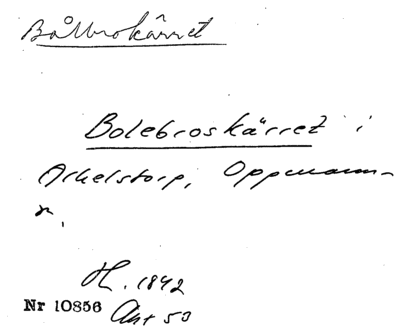 Bålbrokärret
Bolebroskärret i
Arkelstorp, Oppmann-
r.
H. 1842
Nr 10856 Akt 53